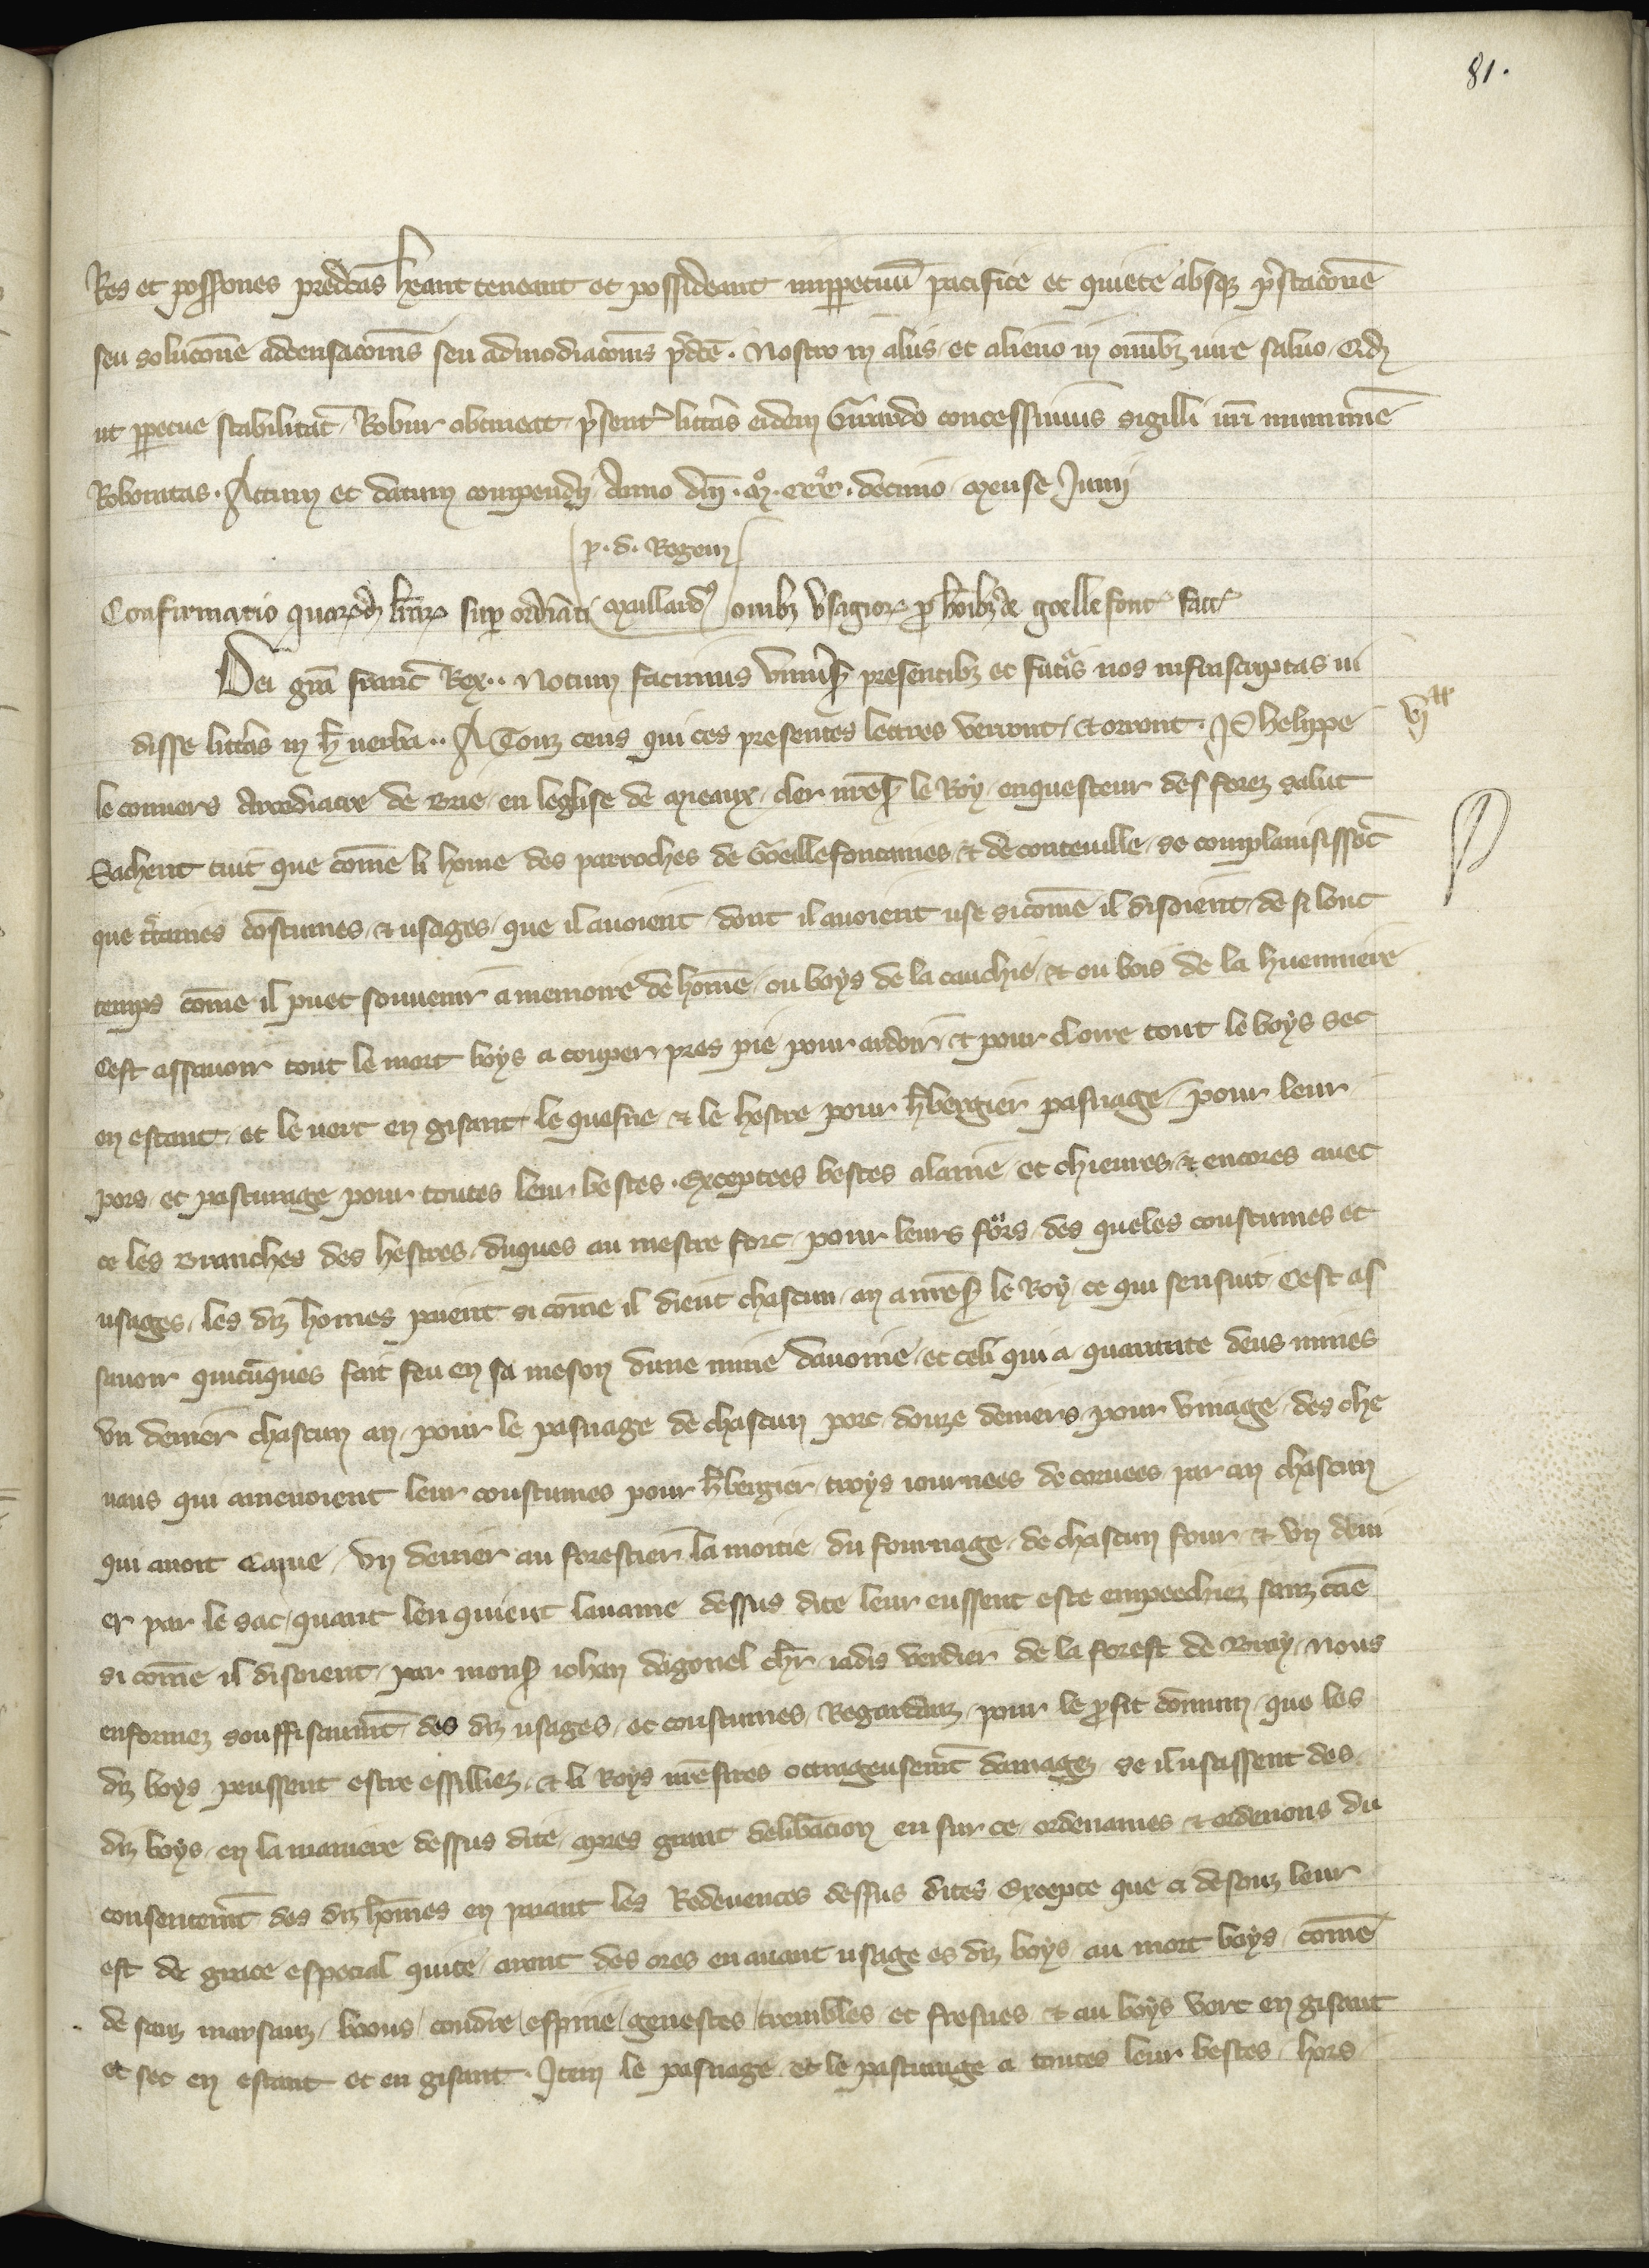 81.
Res et possiones predcas heant teneant et possideant imppetuū pacifice et quiete absqꝫ p̄stacōne
seu solucōne adcensacōnis seu admodiacōnis p̄dcē. Nostro in aliis et alieno in omībꝫ iure saluo. Qd̄
ut ppetue stabilitat̄ Robur obtineat p̄sent̄ litt̄as eidem Girardo concessimus sigilli nr̄i munimīe
Roboratas. Actum et datum compendii Anno dnī. mº. cccº. decimo mense Junij
p. d. Regem
Confirmatio quarᷓdꝫ lr̄arꝫ sup ordinat̄i maillardꝰ omībꝫ vsagiorꝫ p hoībꝫ de goellefont̄ fact̄
Dei grā Franc̄ Rex.. Notum facimus vniuīs presentibꝫ et futīs nos infrascriptas ui
disse litt̄as in h̄ uerba.. A Touz ceus qui ces presentes lettres verront & orront. Phelippe
vjxx
le conuers Arcediacre de Brie en leglise de Meaux cler nr̄e s̄ le Roy enquesteur des forez salut
Sachent tuit que cōme li home des parroches de Goeillefontaines & de conteuille se complainsissent̄
que c̄taines costumes & usages que il auoient dont il auoient use sicōme il disoient de si lonc
temps cōme il puet souuenir a memoire de home ou boys de la cauchie & ou bois de la huenniere
Cest assauoir tout le mort boys a couper pres pie pour ardoir & pour clorre tout le boys sec
en estant et le uert en gisant le quesne & le hestre pour h̄bergier pasnage pour leur
pors et pasturage pour toutes leur bestes. Exceptees bestes alaine et chieures & encores auec
ce les Branches des hestres duques au mestre forc pour leurs fors des queles coustumes et
usages les diz homes paient si cōme il dient chascun an a nr̄e s̄ le Roy ce qui sensuit Cest as
sauoir quicūques fait feu en sa meson dune mine dauoine et celi qui a quantite deus mines
vn denier chascun an pour le pasnage de chascun porc douze deniers pour vinage des che
uaus qui amenoient leur coustumes pour h̄bergier troys iournees de coruees par an chascun
qui auoit Carue vn denier au forestier la moitie du fournage de chascun four & vn deni
er par le sac quant len quieut lauaine dessus dite leur eussent este empeechiez sanz cāe
si cōme il disoient par mons̄ iohan dagonel chr̄ iadis verdier de la forest de Bray nous
enformez souffisaumt̄ des diz usages et coustumes Regardanz pour le profit cōmun que les
diz boys peussent estre essilliez & li Roys nr̄e sires outrageusemt̄ damagez se il usassent des
diz boys en la maniere dessus dite apres grant delib̄acion eu sur ce ordenames & ordenons du
consentemt̄ des diz homes en paiant les Redeuences dessus dites Excepte que ci desouz leur
est de grace especial quite auront des ores en auant usage es diz boys au mort boys cōme
de sauz marsauz boous coudre espine genestes trembles et fresnes & au boys vert en gisant
et sec en estant et en gisant. Item le pasnage et le pasturage a toutes leur bestes hors